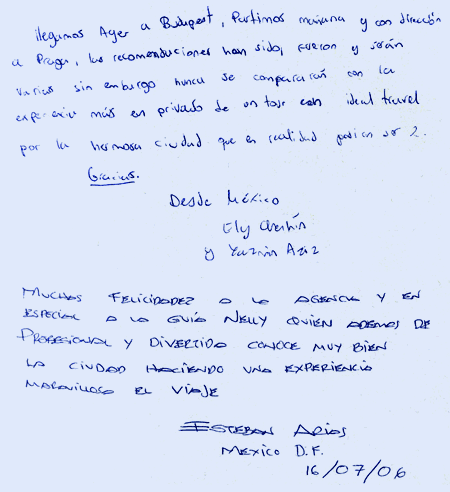 llegamos Ayer a Budapest, Partimos mañana y con dirección
a Praga, las recomendaciones han sido, fueron y serán
varias sin embargo nunca se compararán con la
experiencia más en privado de un tour con ideal travel
por la hermosa ciudad que en realidad podrían ser 2.
Gracias.
Desde México
Ely
y Yazmin Aziz
MUCHAS FELICIDADEZ A LA AGENCIA Y EN
ESPECIAL A LA GUÍA NELLY QUIEN ADEMAS DE
PROFESIONAL Y DIVERTIDA CONOCE MUY BIEN
LA CIUDAD HACIENDO UNA EXPERIENCIA
MARAVILLOSA EL VIAJE
ESTEBAN ARIAS
MEXICO D.F.
16/07/06